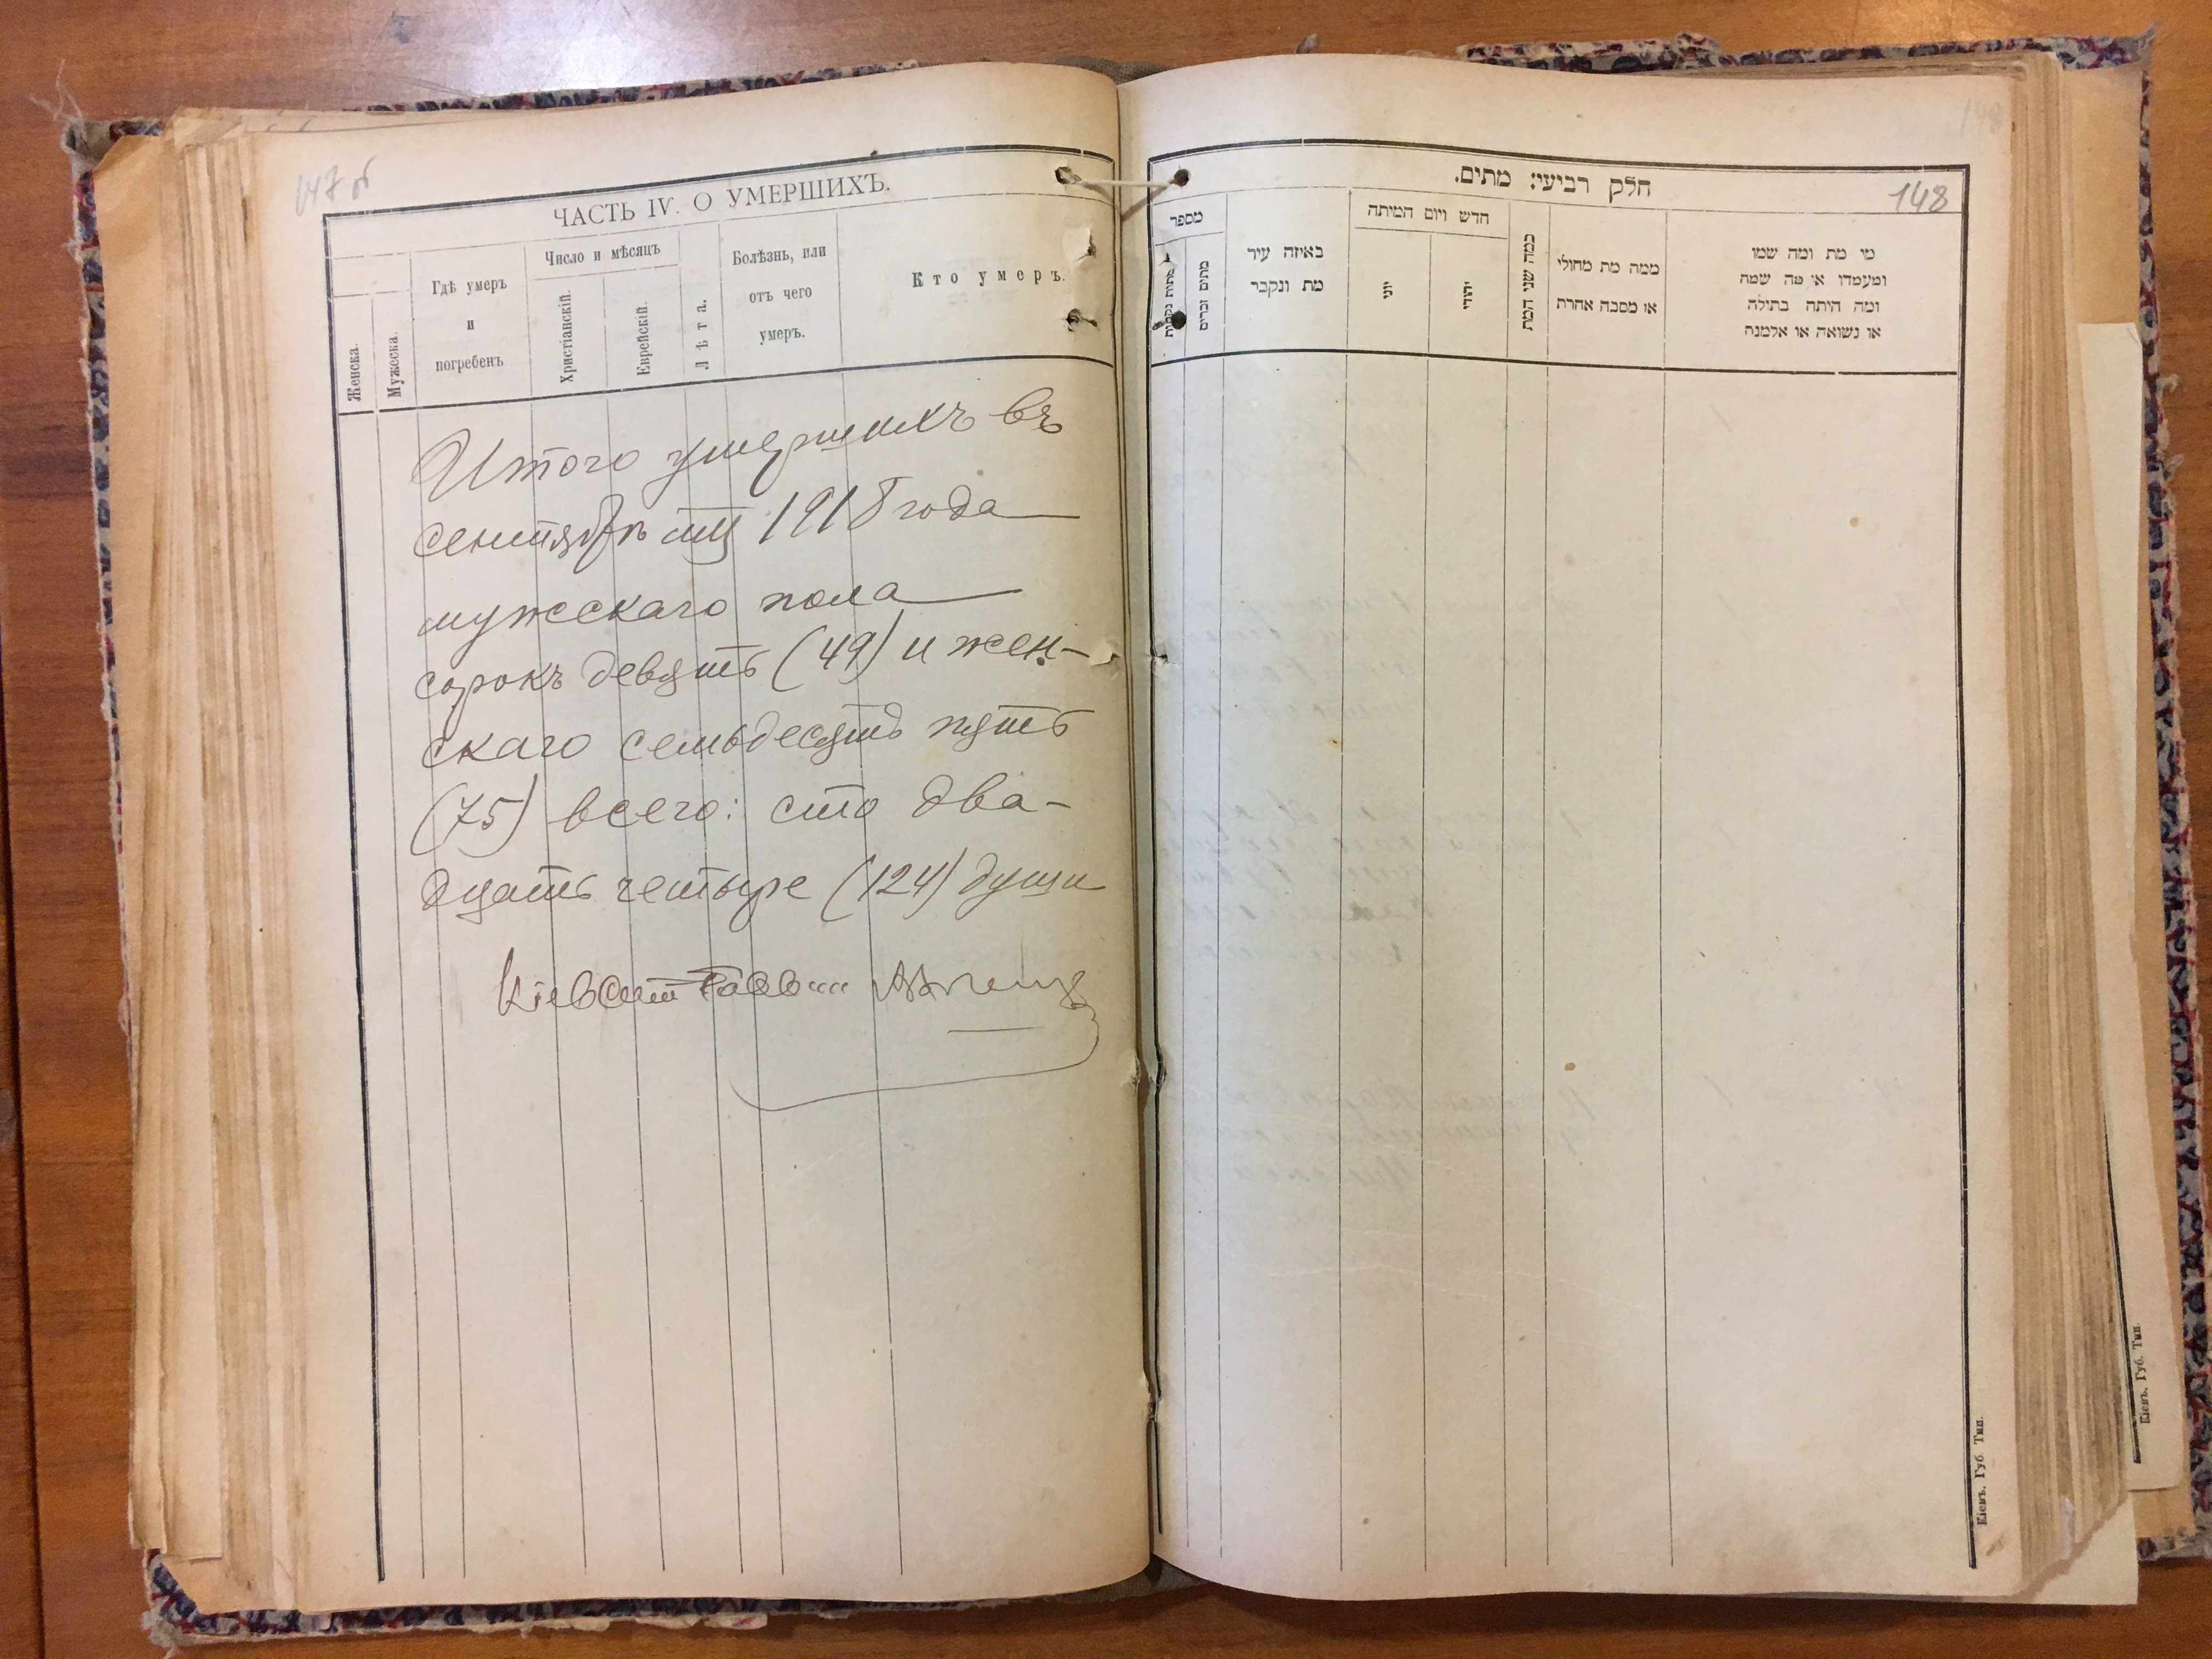 147 об
ЧАСТЬ IV. О УМЕРШИХЪ.
Женска.
Мужеска.
Гдѣ умеръ
и
погребенъ
Число и мѣсяцъ
Христіанскій.
Еврейскій.
Лѣта.
Болѣзнь, или
отъ чего
умеръ.
Кто умеръ.
Итого умершихъ въ
сентябрѣ мц 1918 года
мужескаго пола
сорокъ девять (49) и жен-
скаго семьдесятъ пять
(75) всего: сто два-
дцать четыре (124) души
Кіевскій Раввин
148
חלק רביעי: מתים.
148
מספר
מתות נקבות
מתים זכרים
באיזה עיר
מת ונקבר
חדש ויום המיתה
יוני
יהודי
כמה שני המת
ממה מת מחולי
או מסבה אחרת
מי מת ומה שמו
ומעמדו או מה שמה
ומה היתה בתולה
או נשואה או אלמנה
Кіевъ. Губ. Тип.
Кіевъ. Губ. Тип.